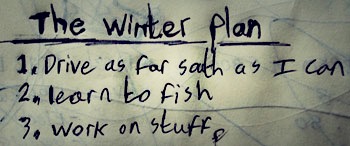 The Winter plan
1. Drive as far sath as I can
2. learn to fish
3. work on stuff.